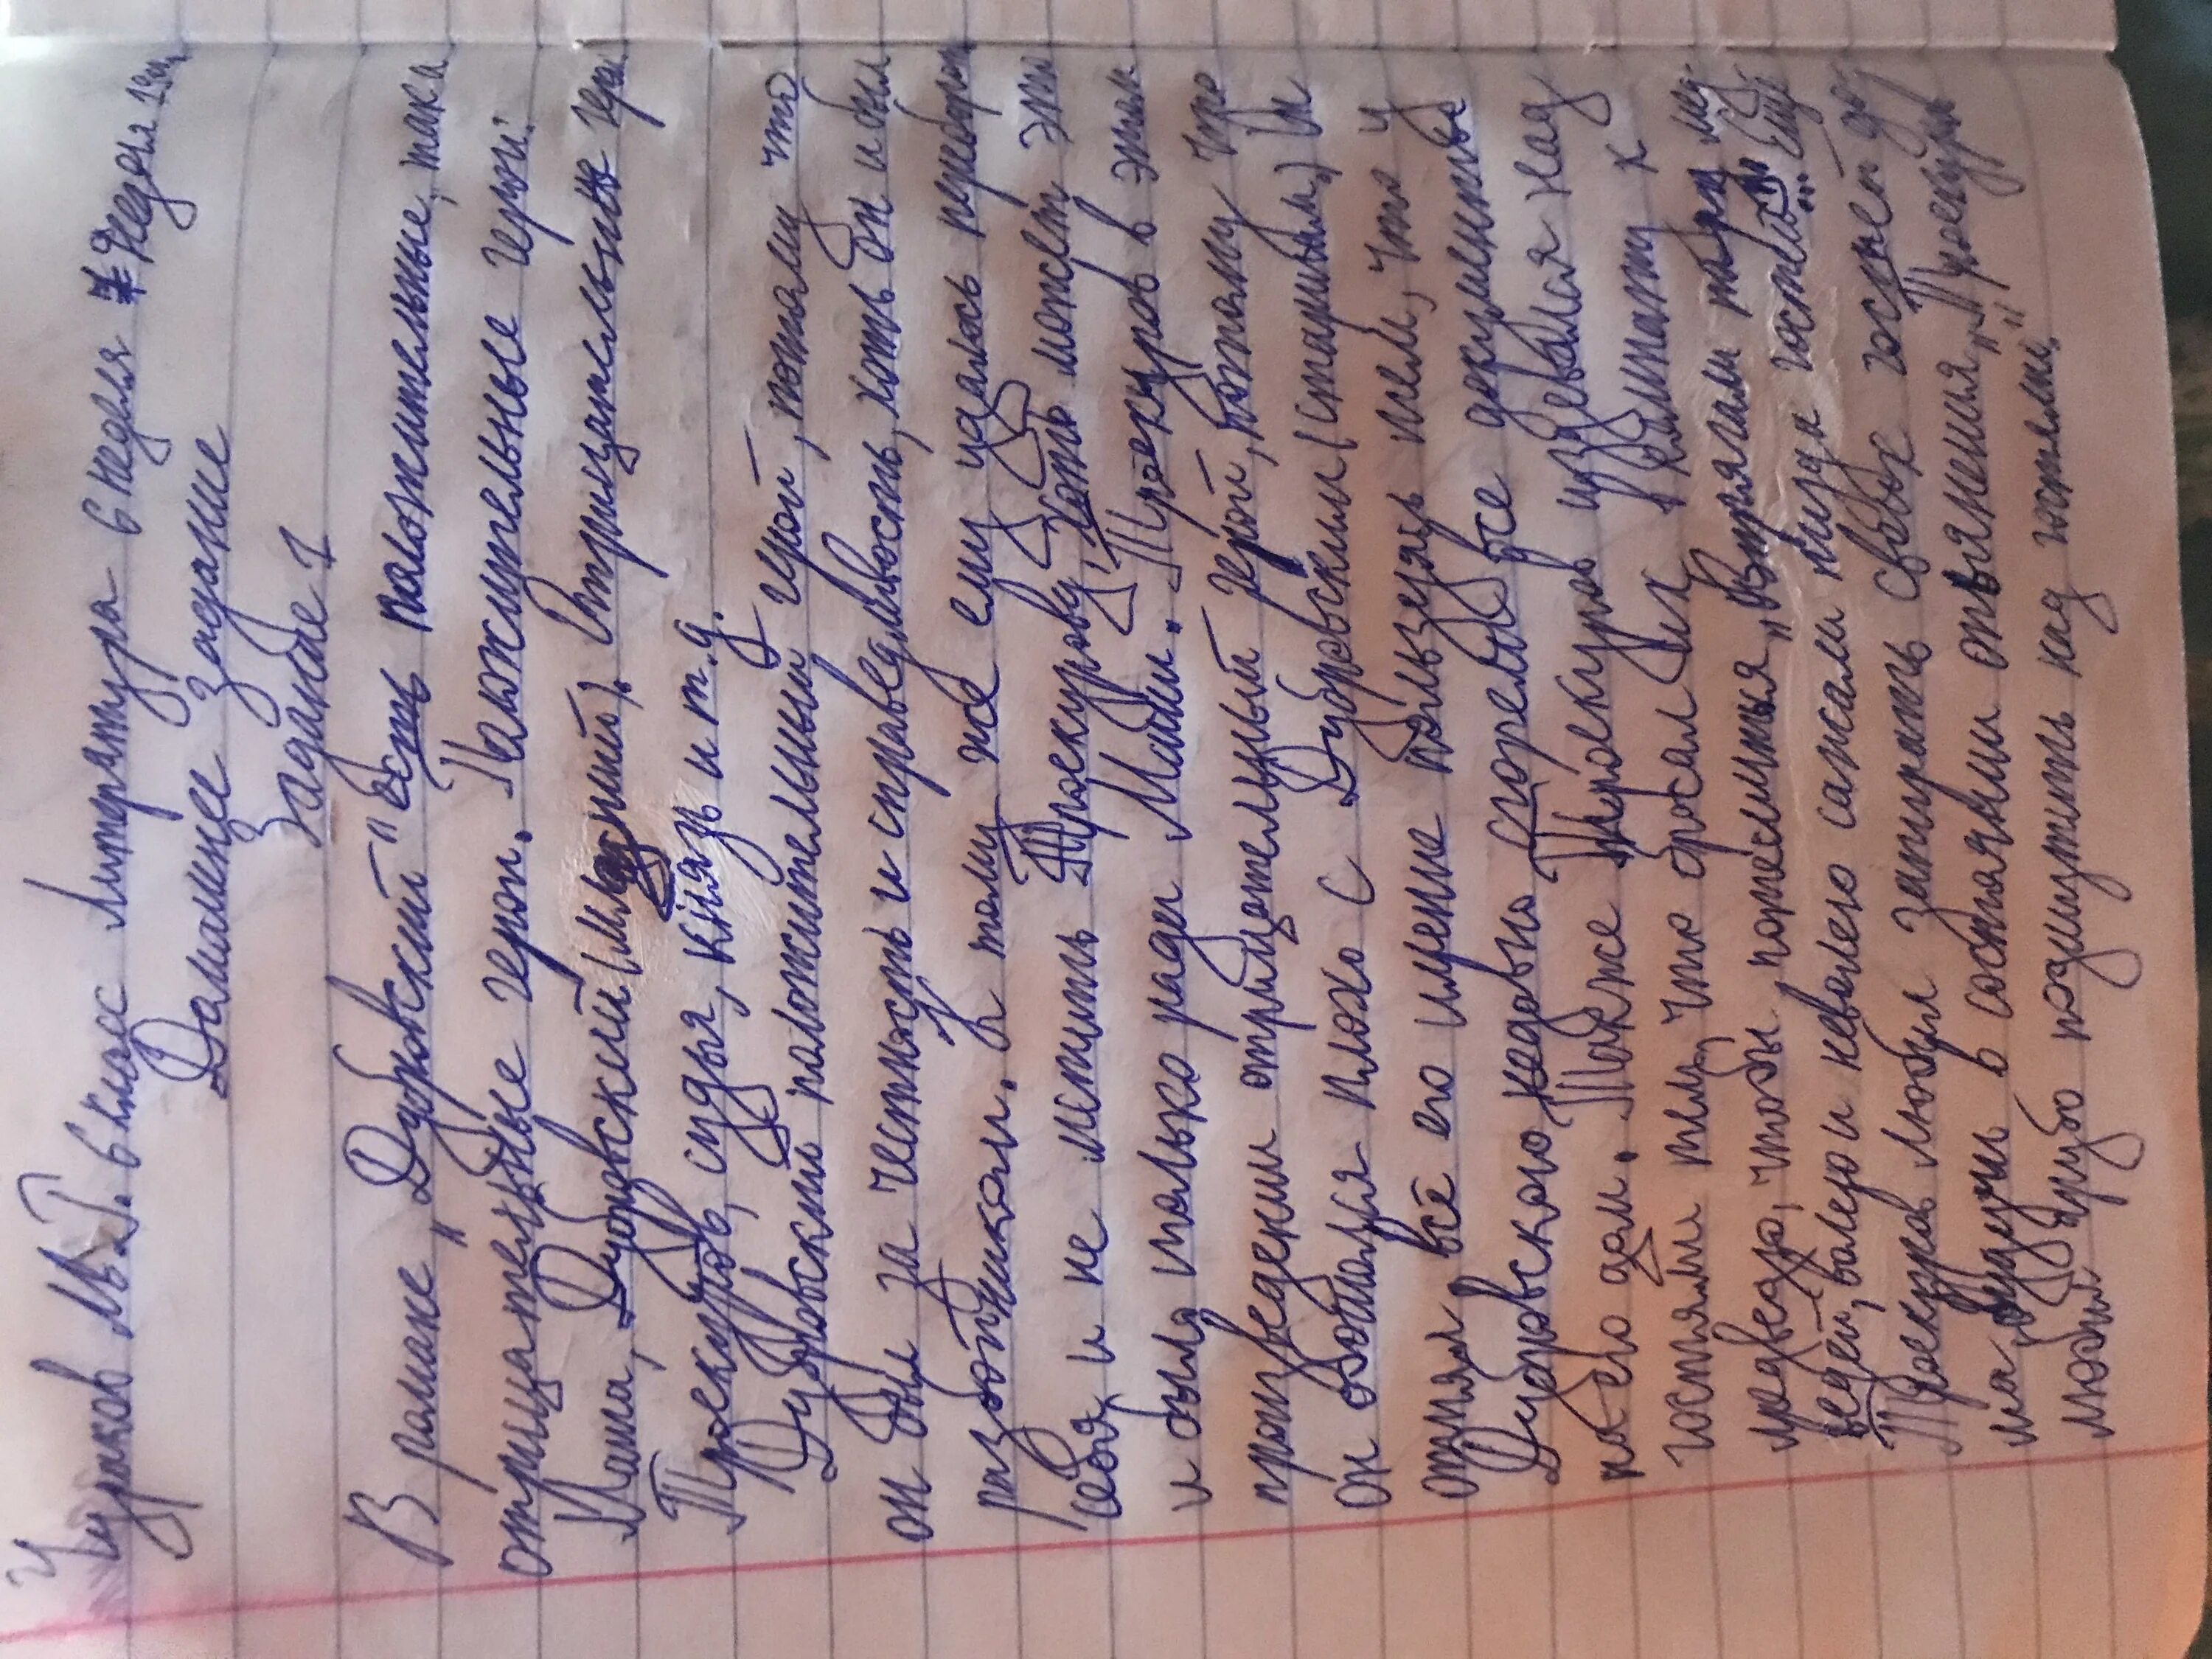 Чураков М.Г. 6 класс Литература 6 неделя
Домашнее задание
Задание 1
В романе „Дубровский" есть положительные, так и
отрицательные герои. Положительные герои:
Маша, Дубровский (младший). Отрицательные геро
Троекуров, судья, князь и т.д.
Дубровский положительный герой, потому что
он был за честность и справедливость, хоть он и был
разбойником. К тому же ему удалось перебороть
себя и не мстить Троекурову, хоть может это
и было только ради Маши. Троекуров в этом
произведении отрицательный герой, потому что
он обошолся плохо с Дубровским (старшим) он
отнял всё его имение пользуясь тем, что у
Дубровского недавно сгорели все документы
его дом. Также Троекуров издевался над
гостями тем, что бросал их в комнату к
медведю, чтобы потешиться,
ведей, волею и неволею сажали туда гостей. Ещё
Троекуров любил запирать своих гостей до
ма, будучи в состоянии опьянения, „Троекуров
любил грубо подшутить над гостями"